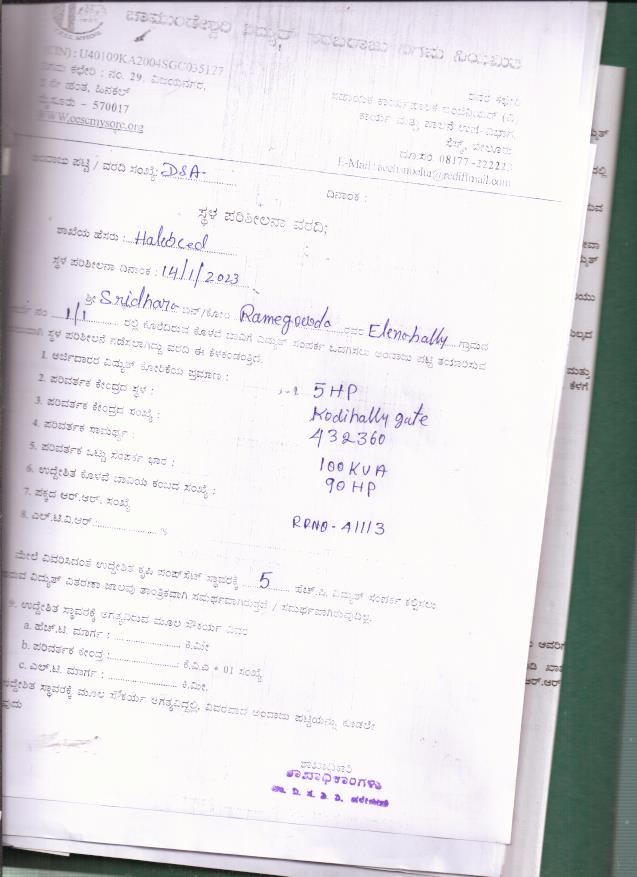 ಚಾಮುಂಡೇಶ್ವರಿ ವಿದ್ಯುತ್ ಸರಬರಾಜು ನಿಗಮ ನಿಯಮಿತ
(CIN) : U40109KA2004SGC035127
ಕಛೇರಿ : ನಂ. 29, ವಿಜಯನಗರ,
ಹಂತ, ಹಿನಕಲ್
ಮೈಸೂರು - 570017
WWW.cescmysore.org
ರವರ ಕಛೇರಿ
ಸಹಾಯಕ ಕಾರ್ಯಪಾಲಕ ಇಂಜಿನಿಯರ್ (ವಿ)
ಕಾರ್ಯ ಮತ್ತು ಪಾಲನೆ ಉಪ-ವಿಭಾಗ
ಸೆಸ್ಕ್, ಬೇಲೂರು
ದೂ.ಸಂ 08177-222223
E-Mail :
ಅಂದಾಜು ಪಟ್ಟಿ / ವರದಿ ಸಂಖ್ಯೆ: DSA-
ದಿನಾಂಕ :
ಸ್ಥಳ ಪರಿಶೀಲನಾ ವರದಿ;
ಶಾಖೆಯ ಹೆಸರು : Halebeed
ಸ್ಥಳ ಪರಿಶೀಲನಾ ದಿನಾಂಕ : 14/1/2023
ಶ್ರೀ Sridhara ಬಿನ್/ಕೋಂ Ramegowda ರವರ Elenahally ಗ್ರಾಮದ
ನಂ 1/1 ರಲ್ಲಿ ಕೊರೆದಿರುವ ಕೊಳವೆ ಬಾವಿಗೆ ವಿದ್ಯುತ್ ಸಂಪರ್ಕ ಒದಗಿಸಲು ಅಂದಾಜು ಪಟ್ಟಿ ತಯಾರಿಸುವ
ಸ್ಥಳ ಪರಿಶೀಲನೆ ನಡೆಸಲಾಗಿದ್ದು ವರದಿ ಈ ಕೆಳಕಂಡಂತ್ತಿದೆ.
1. ಅರ್ಜಿದಾರರ ವಿದ್ಯುತ್ ಕೋರಿಕೆಯ ಪ್ರಮಾಣ : 5 HP
2. ಪರಿವರ್ತಕ ಕೇಂದ್ರದ ಸ್ಥಳ : Kodihally gate
3. ಪರಿವರ್ತಕ ಕೇಂದ್ರದ ಸಂಖ್ಯೆ : 432360
4. ಪರಿವರ್ತಕ ಸಾಮರ್ಥ್ಯ : 100 KVA
5. ಪರಿವರ್ತಕ ಒಟ್ಟು ಸಂಪರ್ಕ ಭಾರ : 90 HP
6. ಉದ್ದೇಶಿತ ಕೊಳವೆ ಬಾವಿಯ ಕಂಬದ ಸಂಖ್ಯೆ :
7. ಪಕ್ಕದ ಆರ್.ಆರ್. ಸಂಖ್ಯೆ RRNO - A1113
8. ಎಲ್.ಟಿ.ವಿ.ಆರ್ : %
ಮೇಲೆ ವಿವರಿಸಿದಂತೆ ಉದ್ದೇಶಿತ ಕೃಷಿ ಪಂಪ್‌ಸೆಟ್ ಸ್ಥಾವರಕ್ಕೆ 5 ಹೆಚ್.ಪಿ. ವಿದ್ಯುತ್ ಸಂಪರ್ಕ ಕಲ್ಪಿಸಲು
ವಿದ್ಯುತ್ ವಿತರಣಾ ಜಾಲವು ತಾಂತ್ರಿಕವಾಗಿ ಸಮರ್ಥವಾಗಿರುತ್ತದೆ / ಸಮರ್ಥವಾಗಿರುವುದಿಲ್ಲ.
9. ಉದ್ದೇಶಿತ ಸ್ಥಾವರಕ್ಕೆ ಅಗತ್ಯವಿರುವ ಮೂಲ ಸೌಕರ್ಯ ವಿವರ
a. ಹೆಚ್.ಟಿ. ಮಾರ್ಗ : ಕಿ.ಮೀ
b. ಪರಿವರ್ತಕ ಕೇಂದ್ರ : ಕೆ.ವಿ.ಎ + 01 ಸಂಖ್ಯೆ
c. ಎಲ್.ಟಿ. ಮಾರ್ಗ : ಕಿ.ಮೀ.
ಉದ್ದೇಶಿತ ಸ್ಥಾವರಕ್ಕೆ ಮೂಲ ಸೌಕರ್ಯ ಅಗತ್ಯವಿದ್ದಲ್ಲಿ, ವಿವರವಾದ ಅಂದಾಜು ಪಟ್ಟಿಯನ್ನು ಕೂಡಲೇ
ಶಾಖಾಧಿಕಾರಿ
ಶಾಖಾಧಿಕಾರಿಗಳು